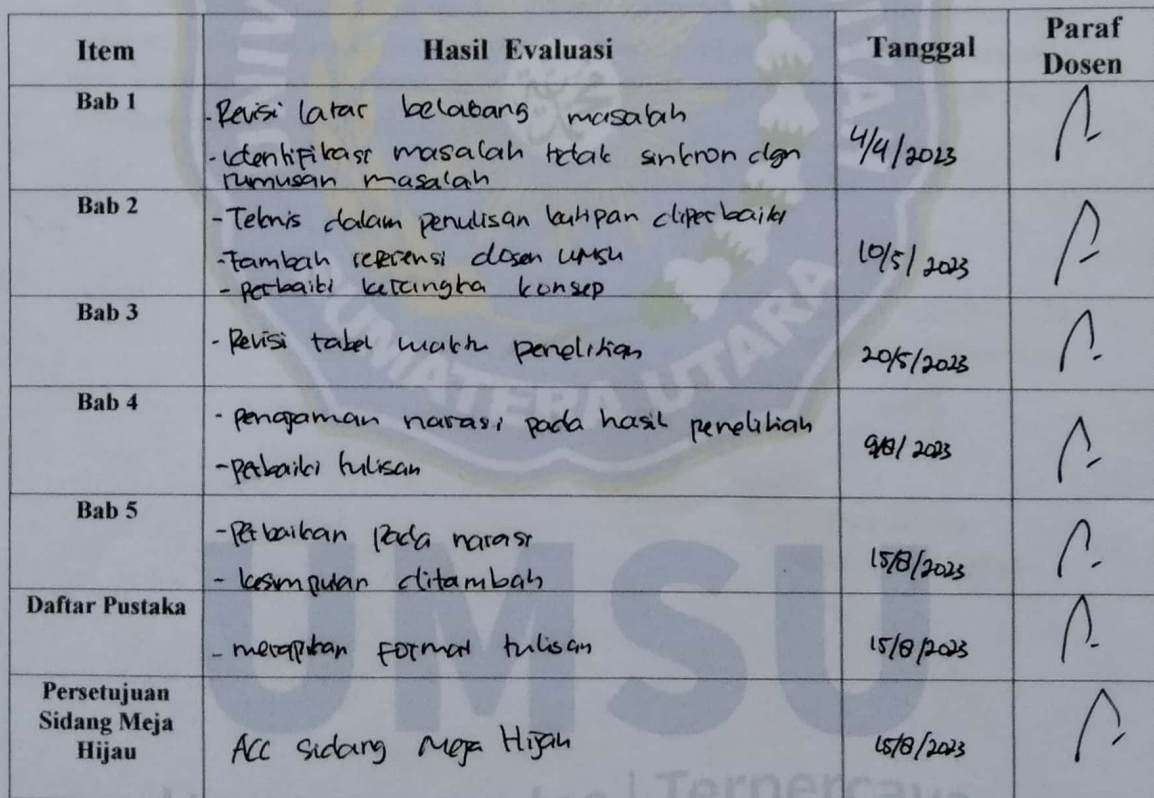 Item Hasil Evaluasi Tanggal Paraf Dosen
Bab 1
- Revisi latar belakang masalah
- identifikasi masalah tidak sinkron dgn
rumusan masalah
4/4/2023
Bab 2
- Teknis dalam penulisan kutipan diperbaiki
- Tambah referensi dosen UMSU
- perbaiki kerangka konsep
10/5/2023
Bab 3
- Revisi tabel waktu penelitian
20/5/2023
Bab 4
- penajaman narasi pada hasil penelitian
- perbaiki tulisan
9/8/2023
Bab 5
- Perbaikan pada narasi
- kesimpulan ditambah
15/8/2023
Daftar Pustaka
- merapikan format tulisan
15/8/2023
Persetujuan
Sidang Meja
Hijau
ACC Sidang Meja Hijau
15/8/2023
SUMATERA UTARA
UMSU
Terpercaya